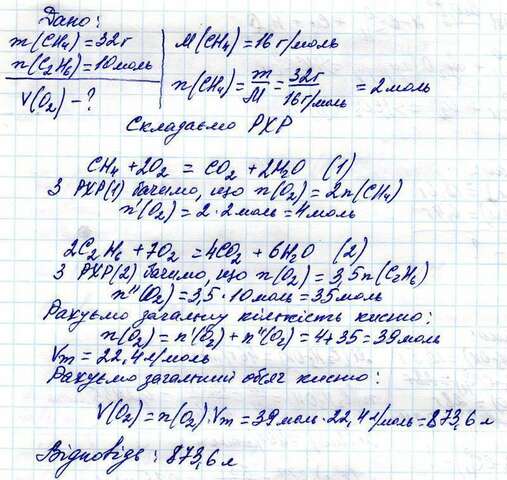 Дано:
m(CH4) = 32г
n(C2H6) = 10моль
V(O2) - ?
M(CH4) = 16 г/моль
n(CH4) = m/M = 32г/16г/моль = 2 моль
Складаємо РХР
CH4 + 2O2 = CO2 + 2H2O (1)
З РХР(1) бачимо, що n(O2) = 2n(CH4)
n'(O2) = 2 · 2моль = 4моль
2C2H6 + 7O2 = 4CO2 + 6H2O (2)
З РХР(2) бачимо, що n(O2) = 3,5n(C2H6)
n''(O2) = 3,5 · 10моль = 35моль
Рахуємо загальну кількість кисню:
n(O2) = n'(O2) + n''(O2) = 4 + 35 = 39моль
Vm = 22,4 л/моль
Рахуємо загальний обсяг кисню:
V(O2) = n(O2) · Vm = 39моль · 22,4 л/моль = 873,6 л
Відповідь: 873,6 л